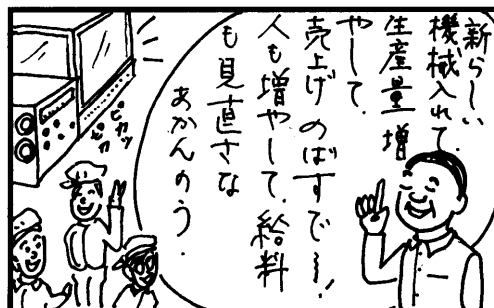 新らしい
機械入れて、
生産量増
やして、
売上げのばすで〜!
人も増やして、給料
も見直さな
あかんのう.
ピカッ
ピカ